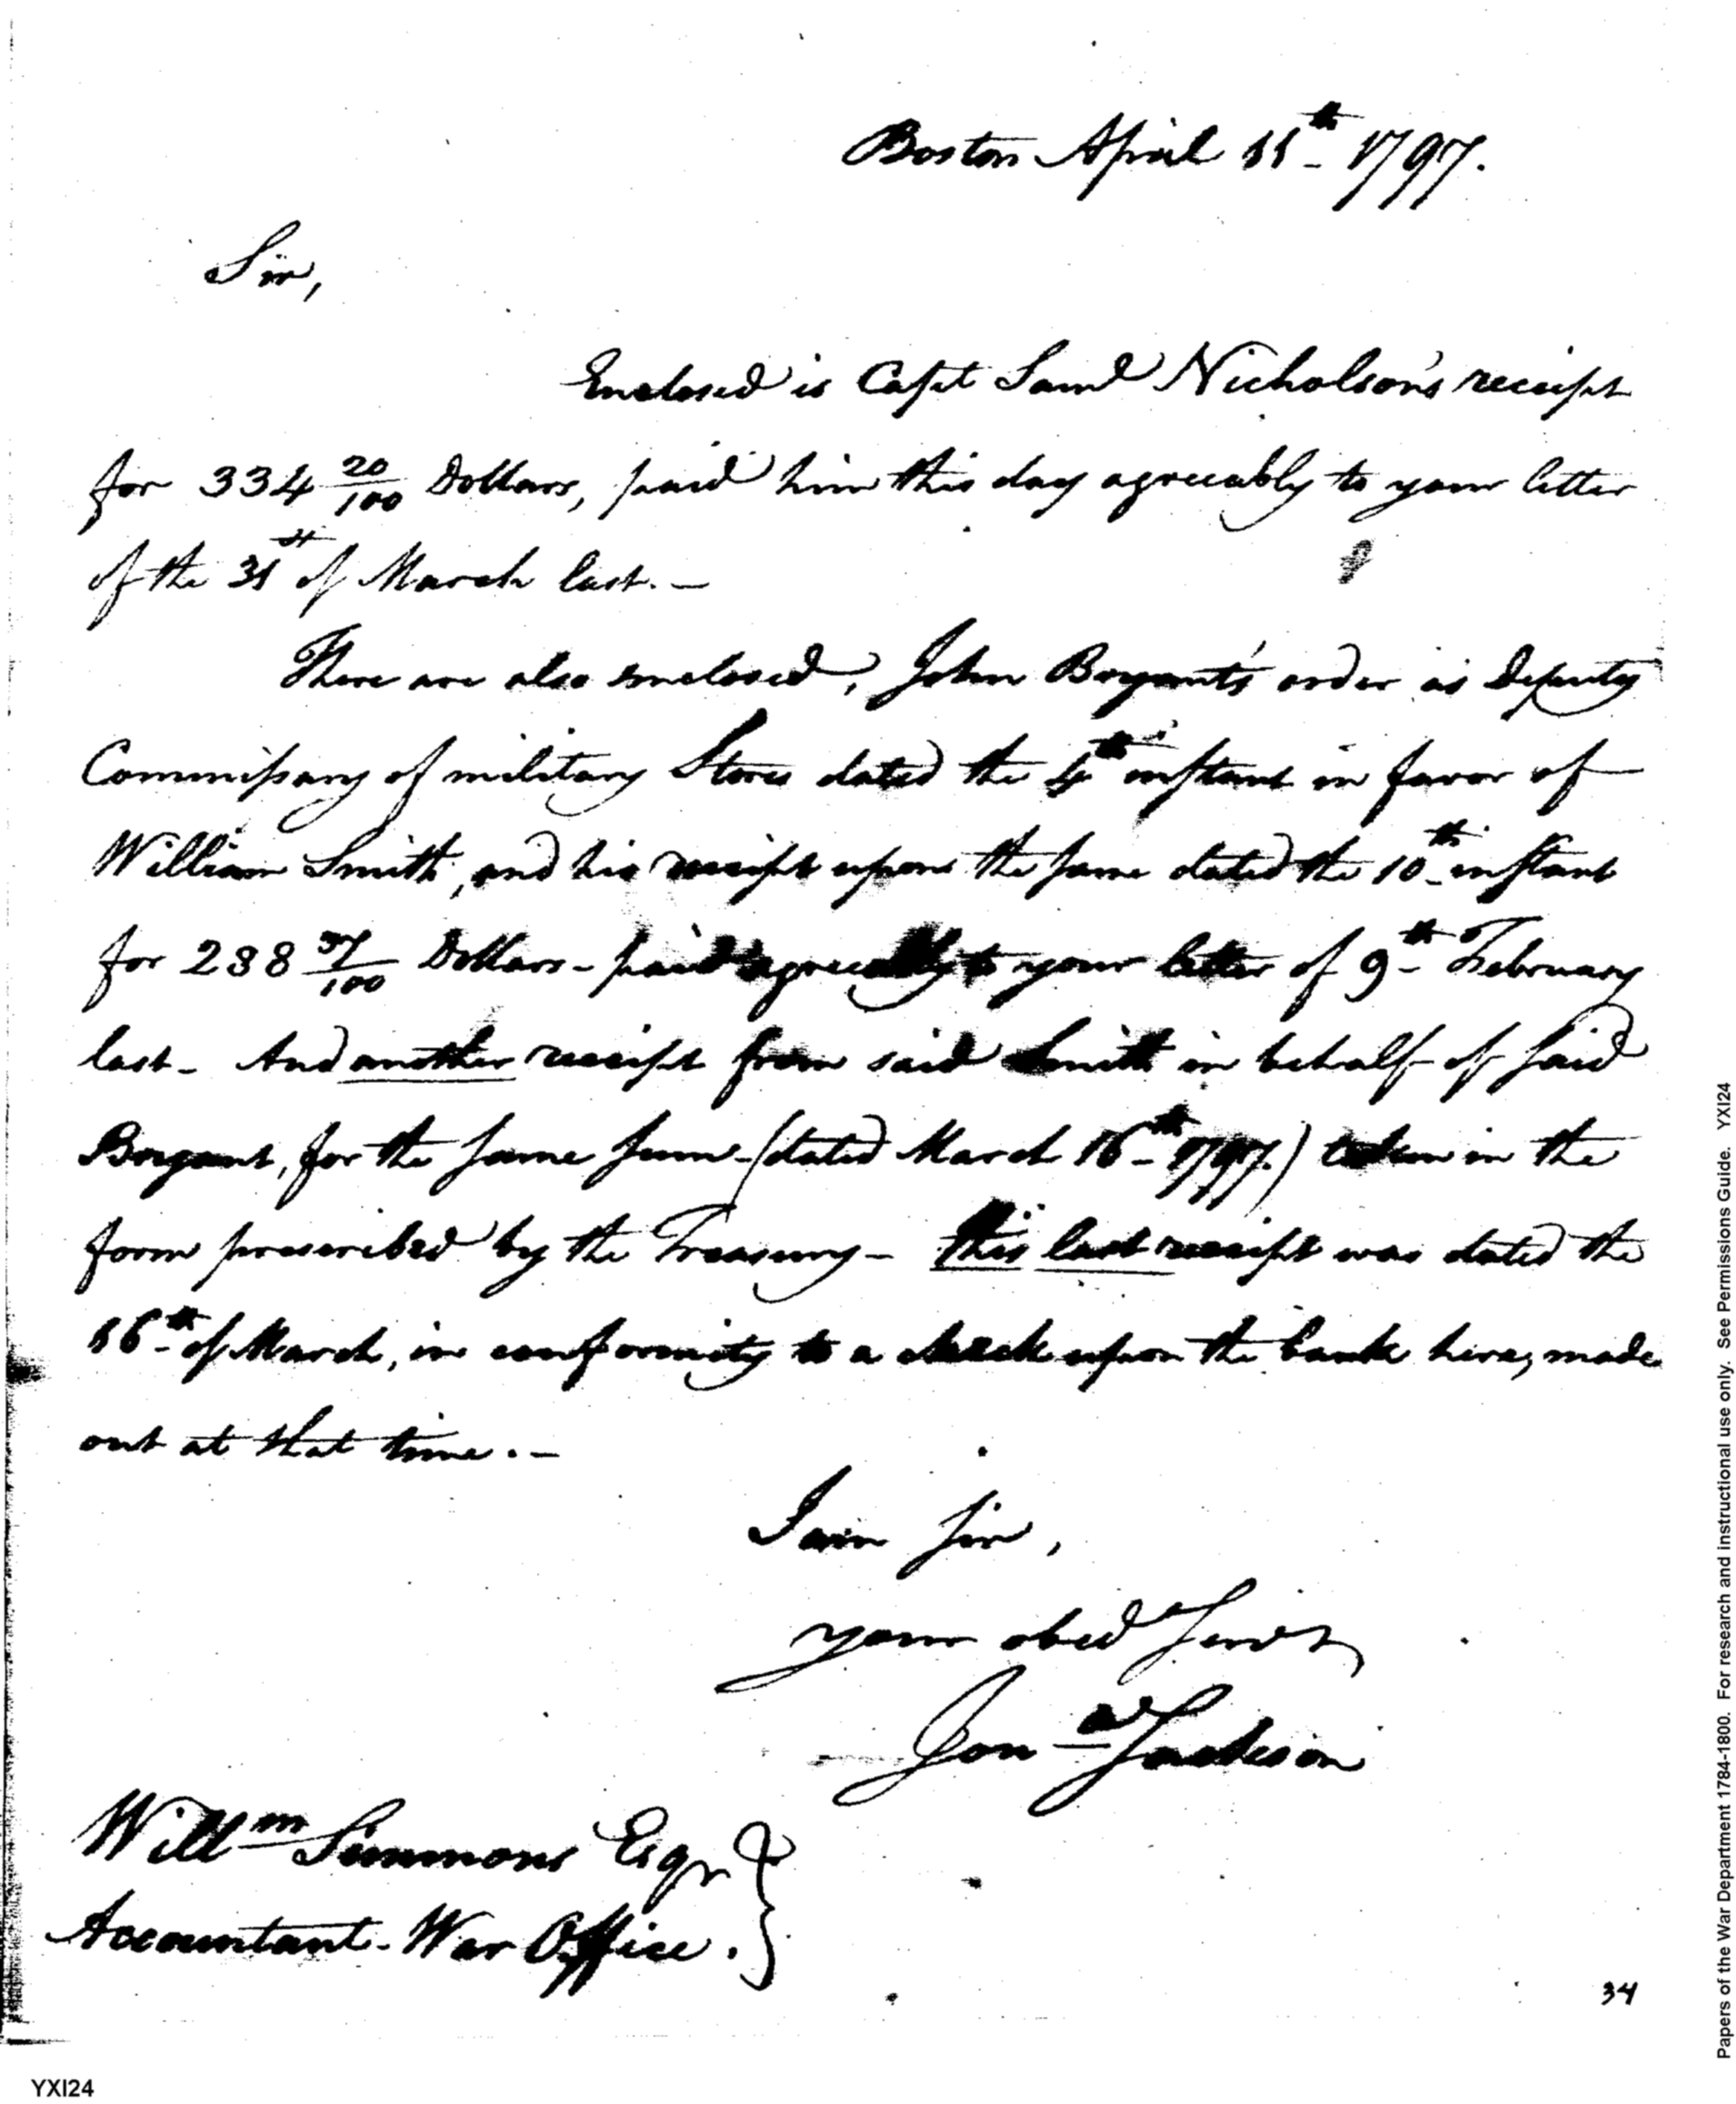 Boston April 11th 1797.
Sir,
Enclosed is Capt Saml Nicholson's receipt
for 334 20/100 Dollars, paid him this day agreeably to your letter
of the 31st of March last. –
There are also enclosed, John Bryant's order as Deputy
Commissary of military Stores dated the 4th instant in favor of
William Smith, and his receipt upon the same dated the 10th instant
for 238 37/100 Dollars – paid agreeably to your letter of 9th February
last – And another receipt from said Smith in behalf of said
Bryant, for the same sum – (dated March 16th 1797.) taken in the
form prescribed by the Treasury – this last receipt was dated the
16th of March, in conformity to a check upon the bank here, made
out at that time. –
I am Sir,
your obed Servt
Jona Jackson
Willm Simmons Esqr
Accountant – War Office.
34
YXI24
Papers of the War Department 1784-1800. For research and instructional use only. See Permissions Guide. YXI24